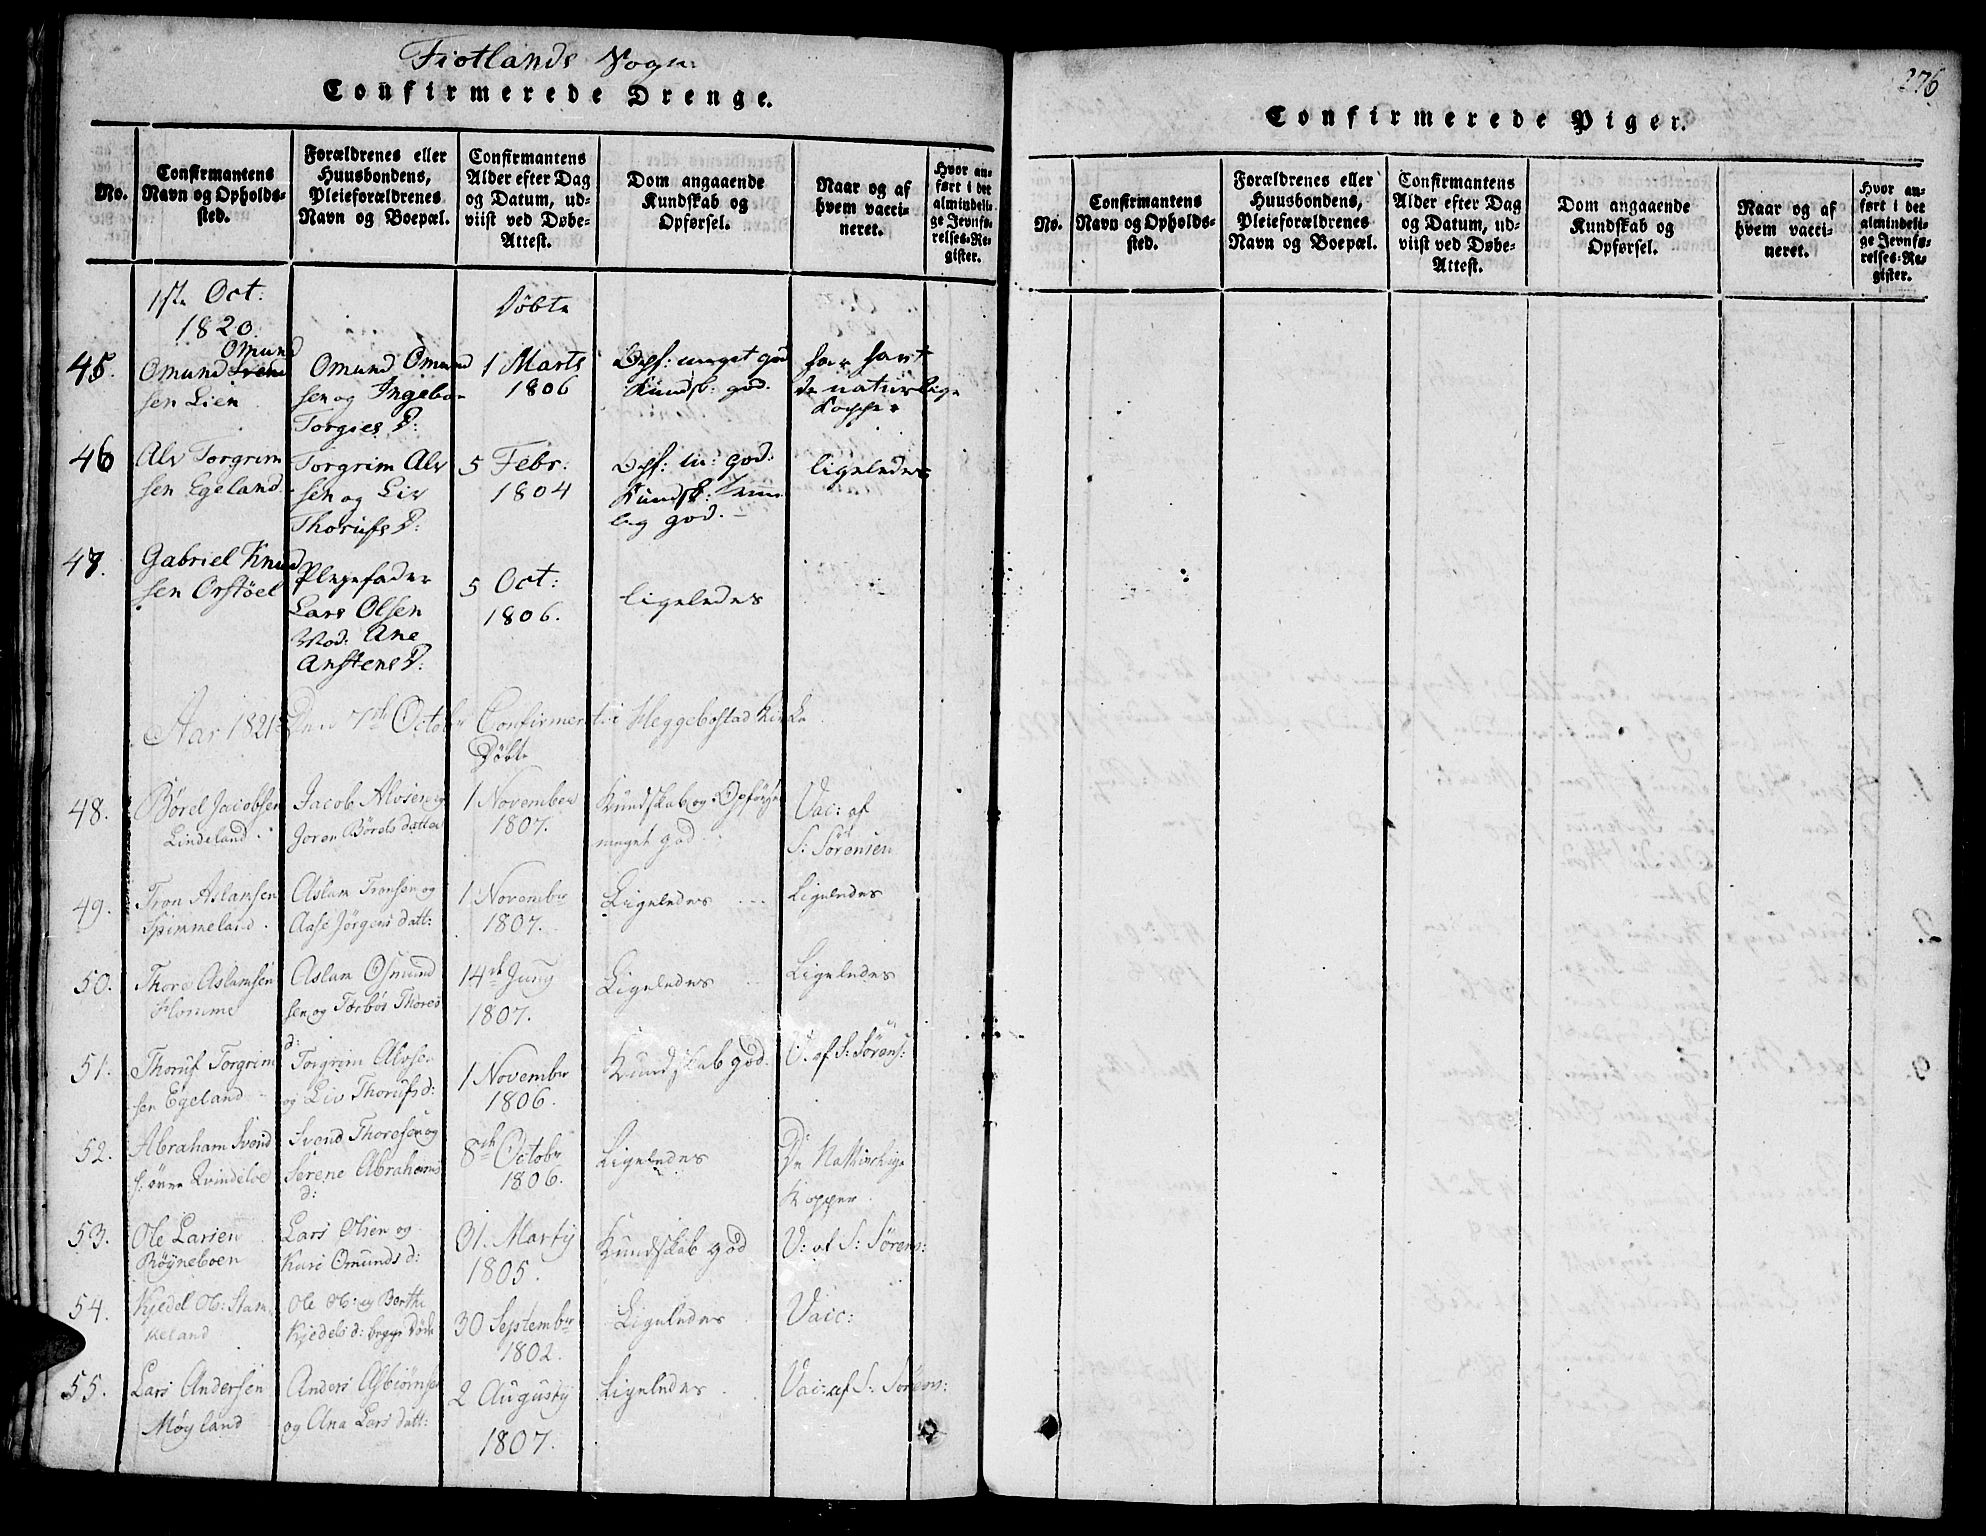 Fiotlands Sogn:
Confirmerede Drenge.
No.
Confirmantens
Navn og Opholds-
sted.
Forældrenes eller
Huusbondens,
Pleieforældrenes
Navn og Boepæl.
Confirmantens
Alder efter Dag
og Datum, ud-
viist ved Døbe-
Attest.
Dom angaaende
Kundskab og
Opførsel.
Naar og af
hvem vacci-
neret.
Hvor an-
ført i det
almindeli-
ge Jevnfø-
relses-Re-
gister.
1ste Oct:
1820.
Døbte
45.
Omund
Omund Svend
sen Lien
Omund Omund
sen og Ingebor
Torgies D:
1 Marts
1806
Opf: meget god
Kundsk: god.
har havt
de naturlige
Kopper
46
Alv Torgrim
sen Egeland
Torgrim Alv
sen og Liv
Thorufs D:
5 Febr:
1804
Opf: m: god:
Kundsk: tem
lig god. –
ligeledes
47.
Gabriel Knud
sen Orstøel
Plegefader
Lars Olsen
Mod: Ane
Anstens D:
5 Oct:
1806.
ligeledes
Aar 1821 Den 7de Octobr Confirmert i Heggebostad Kirke
Døbte
48.
Børel Jacobsen
Lindeland.
Jacob Alvsen og
Joren Børels datter
1 November
1807.
Kundskab og Opførsel
meget god
Vac: af
S: Sørensen
49.
Tron Aslamsen
Spimmeland.
Aslam Tronsen og
Aase Jørgens datt:
1 Novembr
1807.
Ligeledes
Ligeledes
50.
Thore Aslamsen
Homme
Aslam Osmund
sen og Torbor Thores
d:
14de Juny
1807.
Ligeledes
Ligeledes
51.
Thoruf Torgrim
sen Egeland
Torgrim Alvsen
og Liv Thorufs d:
1 November
1806.
Kundskab god.
V. af S: Sørens:
52.
Abraham Svend
Svend Thoresen og
Serene Abrahams
d:
8de Octobr
1806.
Ligeledes
De Nattirlige
Kopper
53.
Ole Larsen
Røyneboen
Lars Olsen og
Kari Omunds d:
31. Martij
1805.
Kundskab god
V: af S: Sørens:
54.
Kjedel Ol: Stam
keland
Ole Ol: og Berthe
Kjedels d: begge Døde
30 Septembr
1802.
Ligeledes
Vaic:
55.
Lars Andersen
Møyland
Anders Asbiørnsen
og Ana Lars datt:
2 Augustij
1807.
Ligeledes
Vac: af S: Sørens:
276
Confirmerede Piger.
No.
Confirmantens
Navn og Opholds-
sted.
Forældrenes eller
Huusbondens,
Pleieforældrenes
Navn og Boepæl.
Confirmantens
Alder efter Dag
og Datum, ud-
viist ved Døbe-
Attest.
Dom angaaende
Kundskab og
Opførsel.
Naar og af
hvem vacci-
neret.
Hvor an-
ført i det
almindeli-
ge Jevnfø-
relses-Re-
gister.